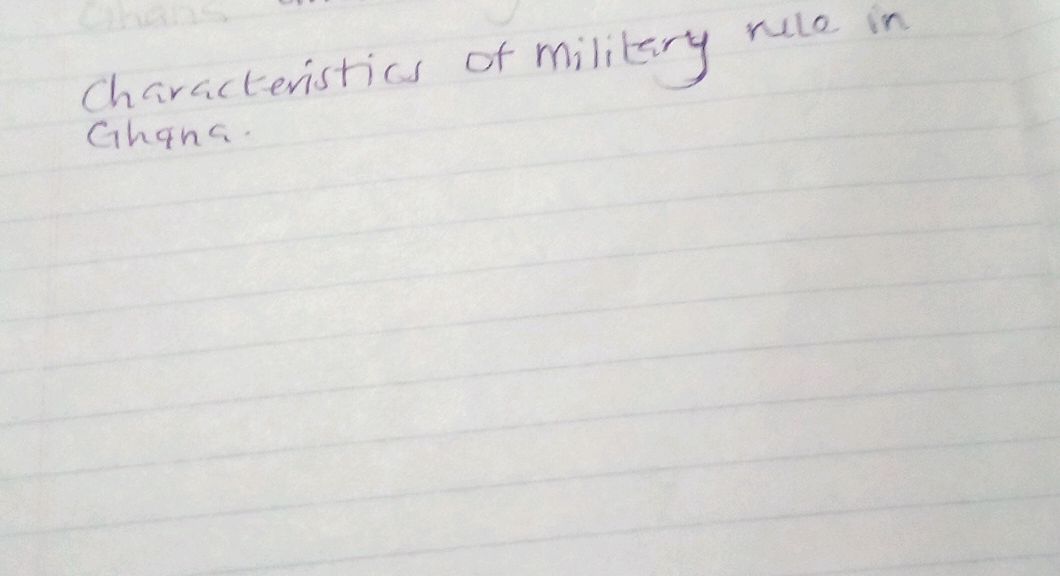 Characteristics of military rule in
Ghana.